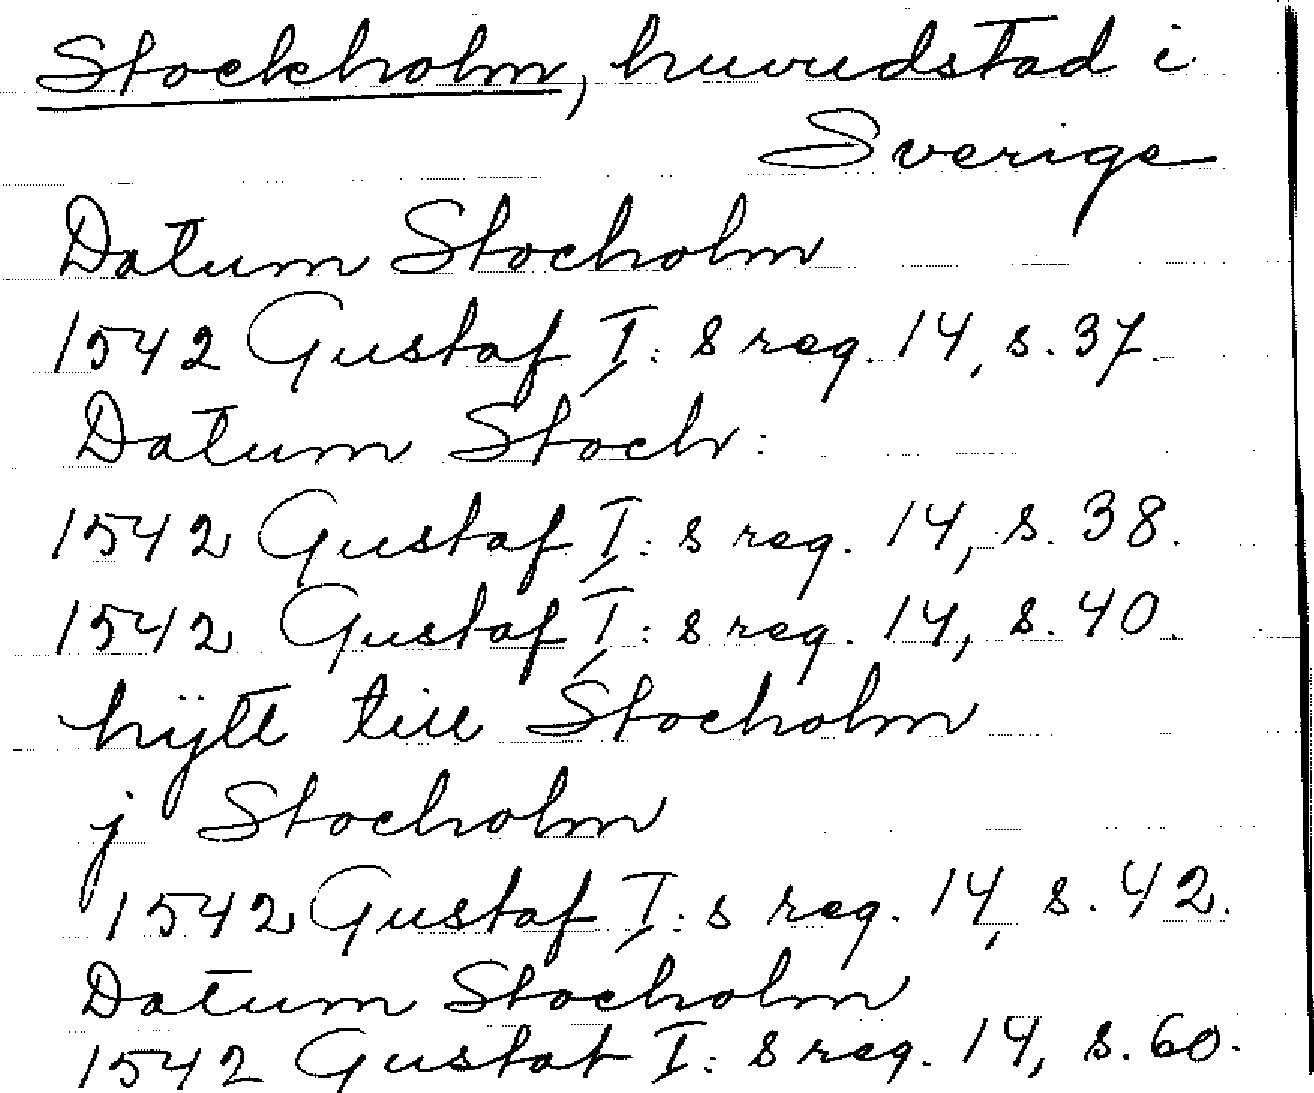 Stockholm, huvudstad i
Sverige
Datum Stocholm
1542 Gustaf I: s reg. 14, s. 37.
Datum Stoch:
1542 Gustaf I: s reg. 14, s. 38.
1542 Gustaf I: s reg. 14, s. 40.
hijtt till Stocholm
j Stocholm
1542 Gustaf I: s reg. 14, s. 42.
Datum Stocholm
1542 Gustaf I: s reg. 14, s. 60.